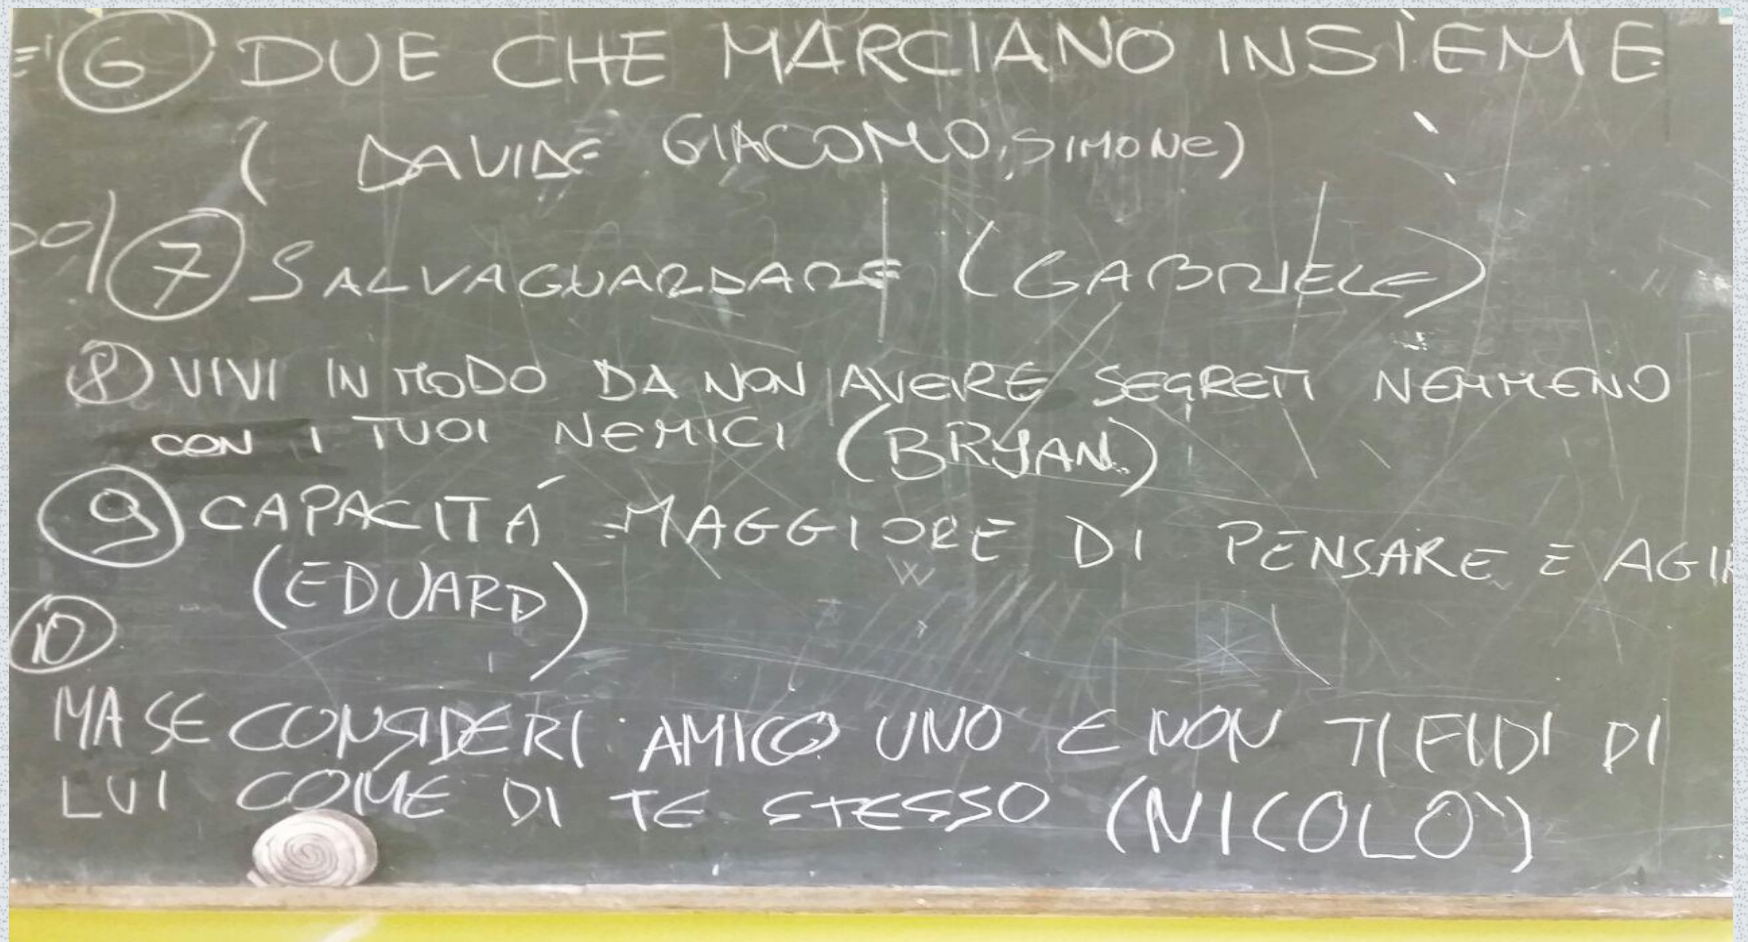 6 DUE CHE MARCIANO INSIEME
( DAVIDE GIACOMO, SIMONE)
7 SALVAGUARDARE (GABRIELE)
8 VIVI IN MODO DA NON AVERE SEGRETI NEMMENO
CON I TUOI NEMICI (BRYAN)
9 CAPACITÁ MAGGIORE DI PENSARE E AGIR
(EDUARD)
10
MA SE CONSIDERI AMICO UNO E NON TI FIDI DI
LUI COME DI TE STESSO (NICOLÒ)